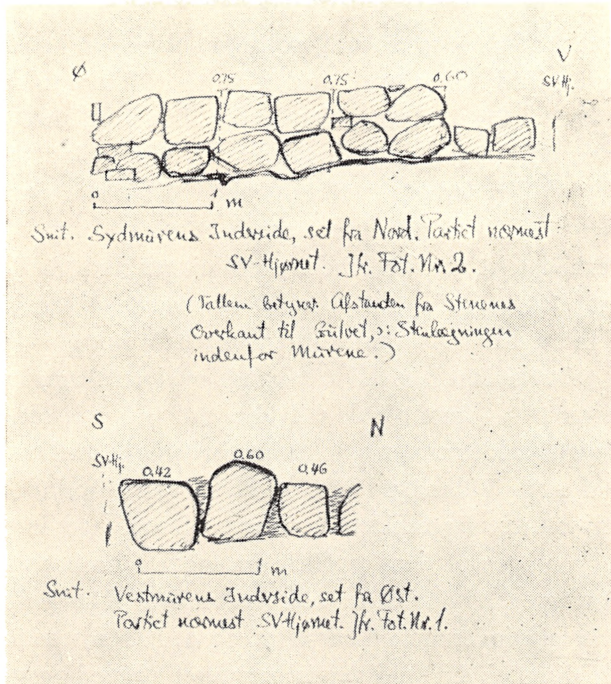 Ø V
0,75 0,75 0,60 SV-Hj.
0 1 m
Snit. Sydmurens Inderside, set fra Nord. Partiet nærmest
SV-Hjørnet. Jfr. Fot. Nr. 2.
(Tallene betyner Afstanden fra Stenenes
Overkant til Gulvet, ɔ: Stenlægningen
indenfor Murene.)
S N
SV-Hj. 0,42 0,60 0,46
0 1 m
Snit. Vestmurens Inderside, set fra Øst.
Partiet nærmest SV-Hjørnet. Jfr. Fot. Nr. 1.